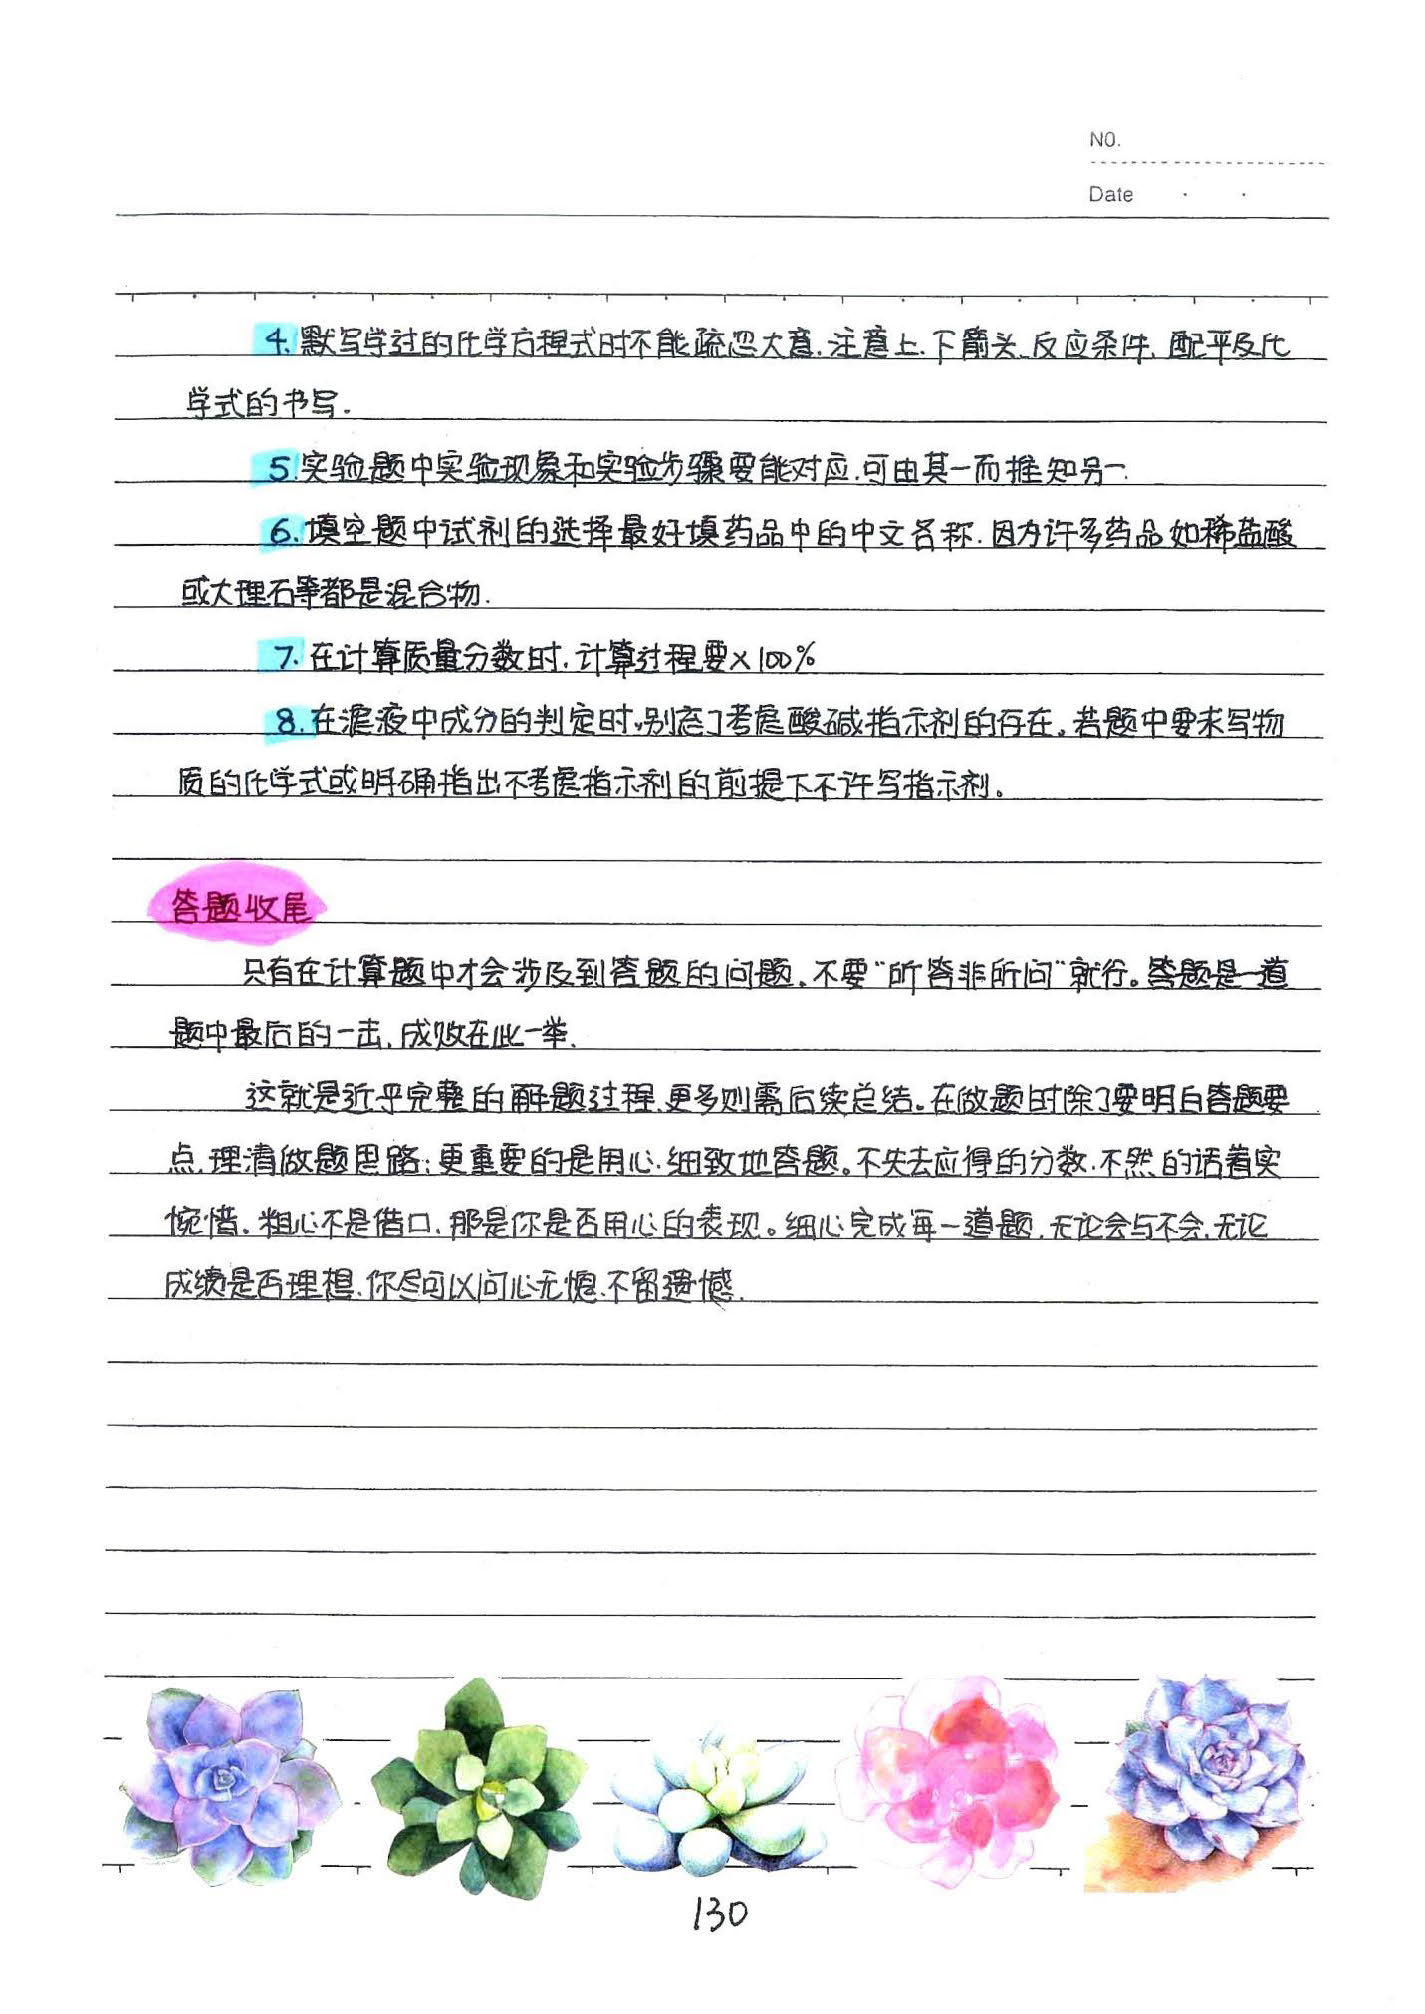 NO.
Date
4. 默写学过的化学方程式时不能疏忽大意.注意上、下箭头、反应条件、配平及化
学式的书写.
5.实验题中实验现象和实验步骤要能对应.可由其一而推知另一.
6. 填空题中试剂的选择最好填药品中的中文名称.因为许多药品如稀盐酸
或大理石等都是混合物.
7. 在计算质量分数时.计算过程要×100%
8.在滤液中成分的判定时,别忘了考虑酸碱指示剂的存在。若题中要求写物
质的化学式或明确指出不考虑指示剂的前提下不许写指示剂。
答题收尾
只有在计算题中才会涉及到答题的问题.不要“所答非所问”就行。答题是一道
题中最后的一击.成败在此一举.
这就是近乎完整的解题过程.更多则需后续总结。在做题时除了要明白答题要
点.理清做题思路;更重要的是用心.细致地答题。不失去应得的分数.不然的话着实
惋惜.粗心不是借口.那是你是否用心的表现。细心完成每一道题.无论会与不会.无论
成绩是否理想.你尽可以问心无愧.不留遗憾.
130